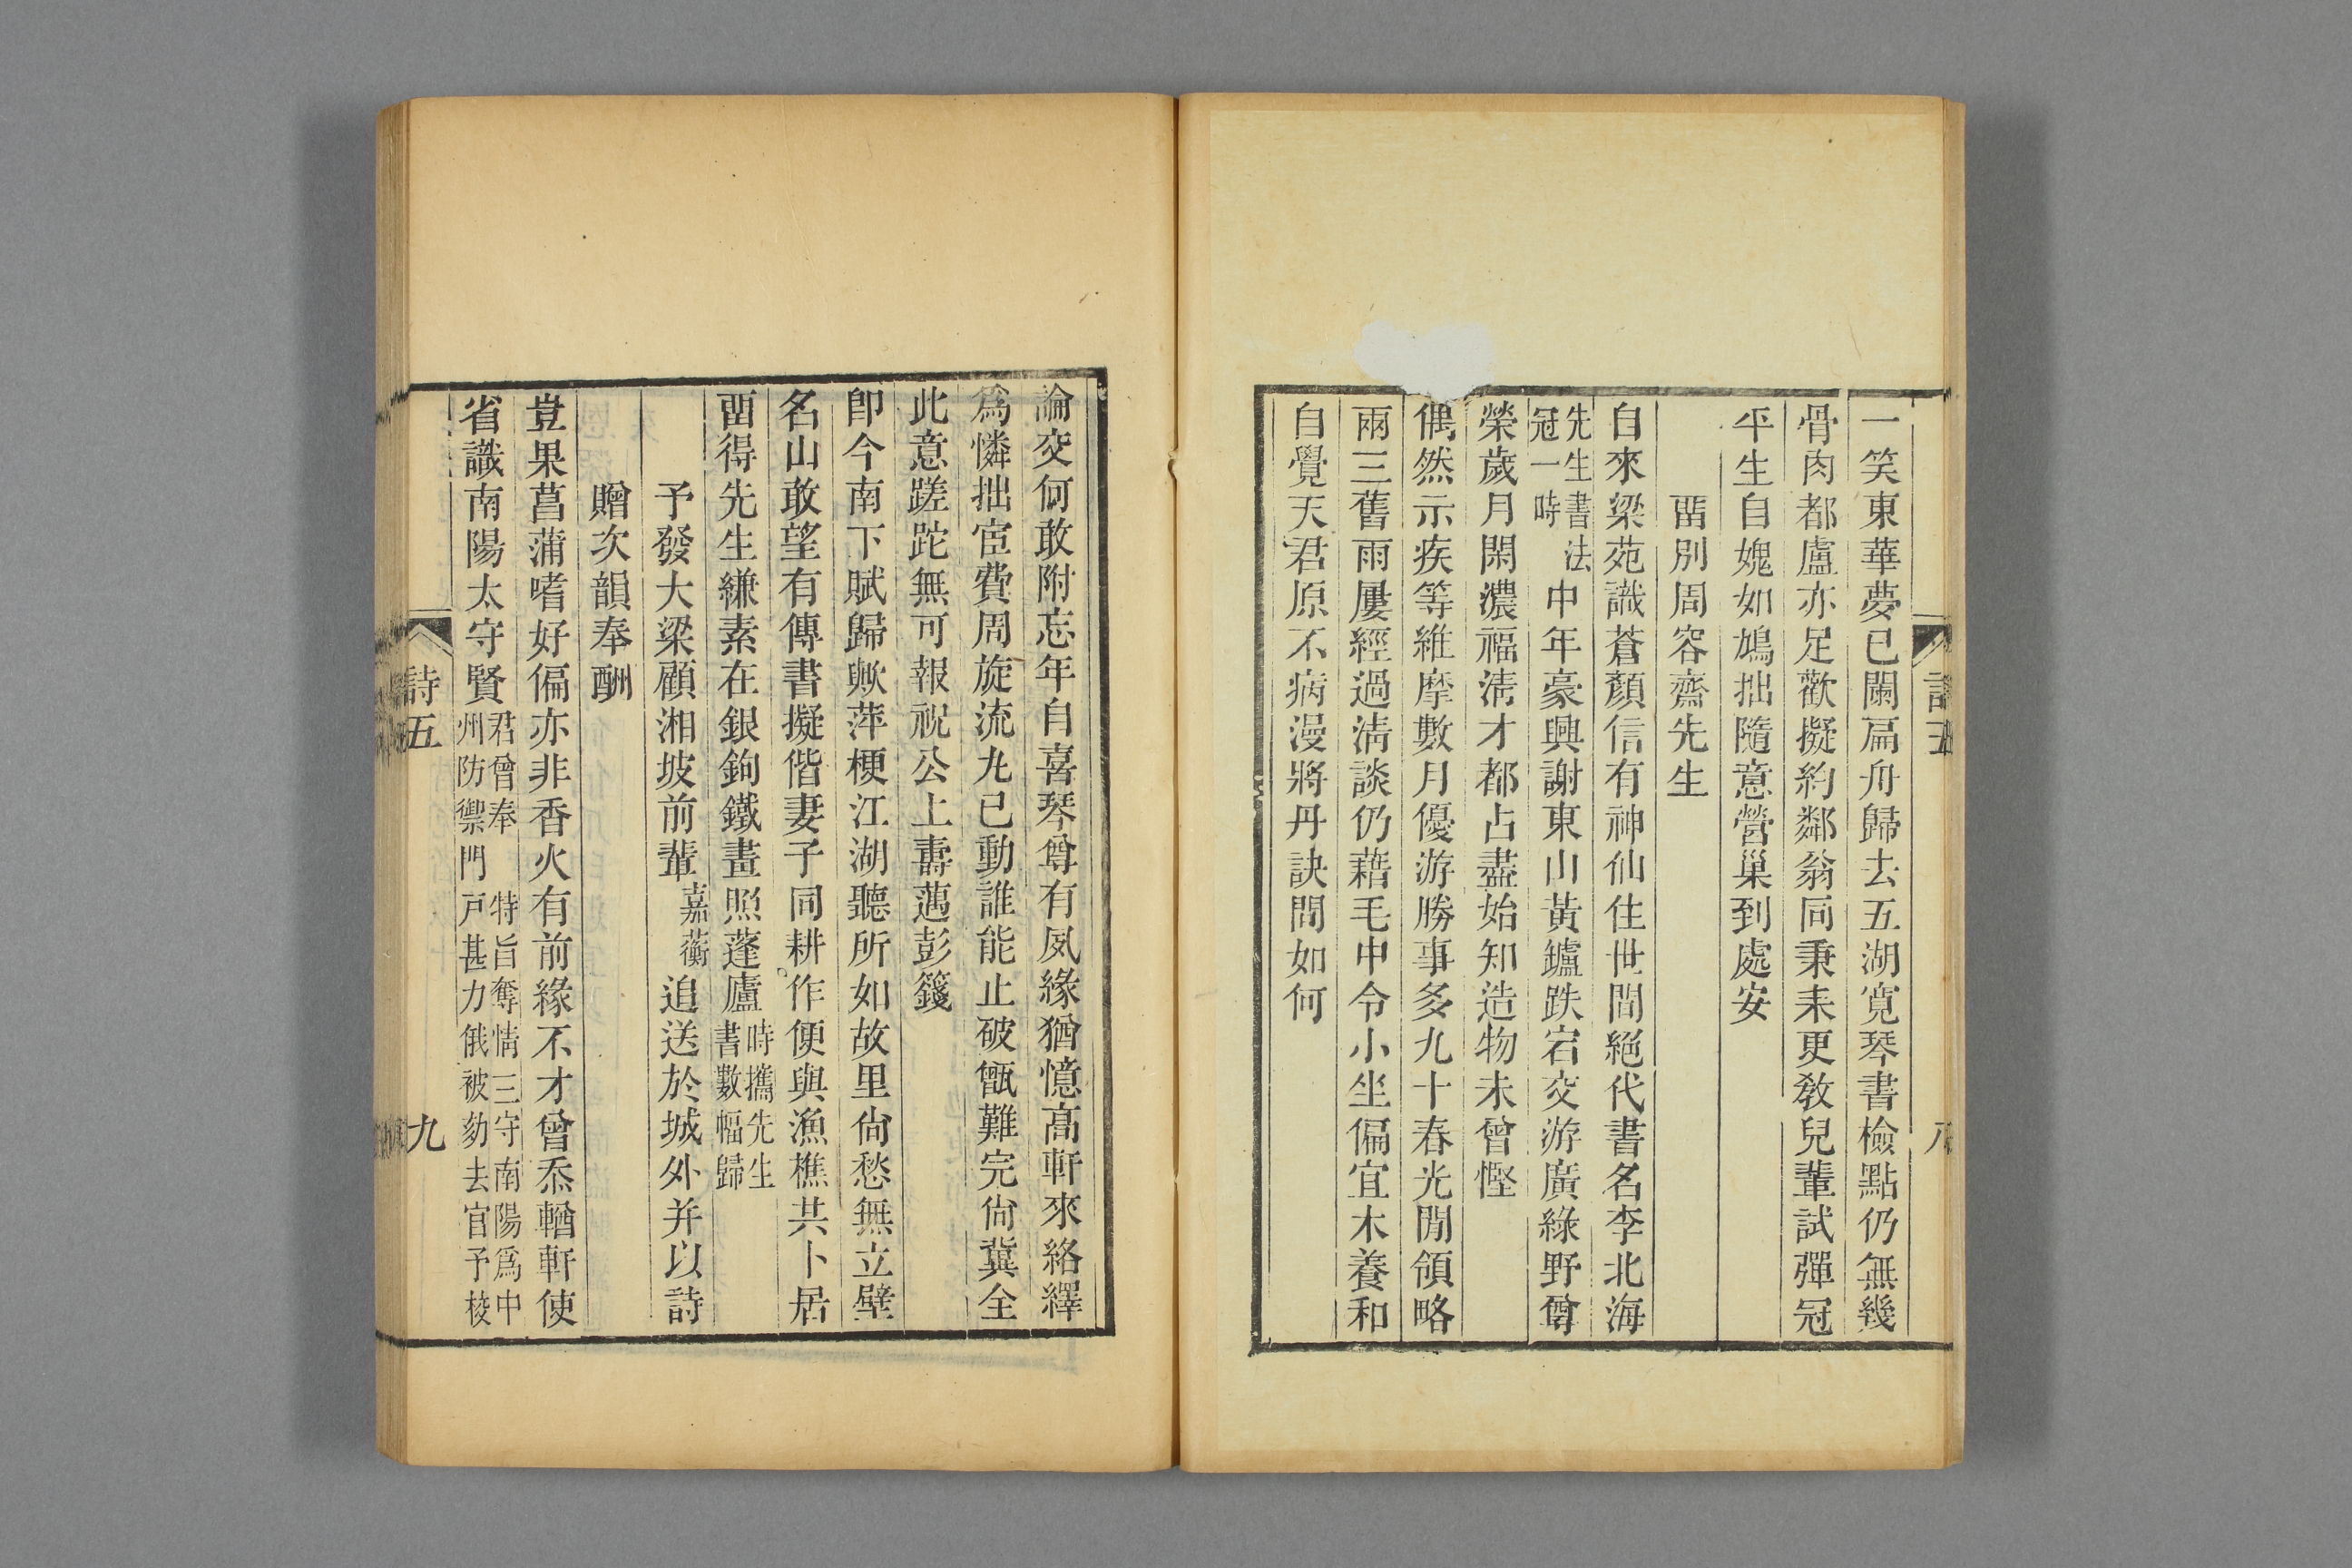 一笑東華夢已闌扁舟歸去五湖寬琴書檢點仍無幾
骨肉都盧亦足歡擬約鄰翁同秉耒更敎兒輩試彈冠
平生自媿如鳩拙隨意營巢到處安
畱別周容齋先生
自來梁苑識蒼顏信有神仙住世間絕代書名李北海
先生書法
冠一時
中年豪興謝東山黃鑪跌宕交游廣綠野尊
榮歲月閑濃福淸才都占盡始知造物未曾慳
偶然示疾等維摩數月優游勝事多九十春光閒領略
兩三舊雨屢經過淸談仍藉毛中令小坐偏宜木養和
自覺天君原不病漫將丹訣問如何
詩五
八
論交何敢附忘年自喜琴尊有夙緣猶憶高軒來絡繹
爲憐拙宦費周旋流丸已動誰能止破甑難完尙冀全
此意蹉跎無可報祝公上壽邁彭籛
卽今南下賦歸歟萍梗江湖聽所如故里尙愁無立壁
名山敢望有傳書擬偕妻子同耕作便與漁樵共卜居
畱得先生縑素在銀鉤鐵畫照蓬廬
時攜先生
書數幅歸
予發大梁顧湘坡前輩嘉蘅追送於城外并以詩
贈次韻奉酬
豈果菖蒲嗜好偏亦非香火有前緣不才曾忝輶軒使
省識南陽太守賢
君曾奉 特旨奪情三守南陽爲中
州防禦門戸甚力俄被劾去官予按
詩五
九